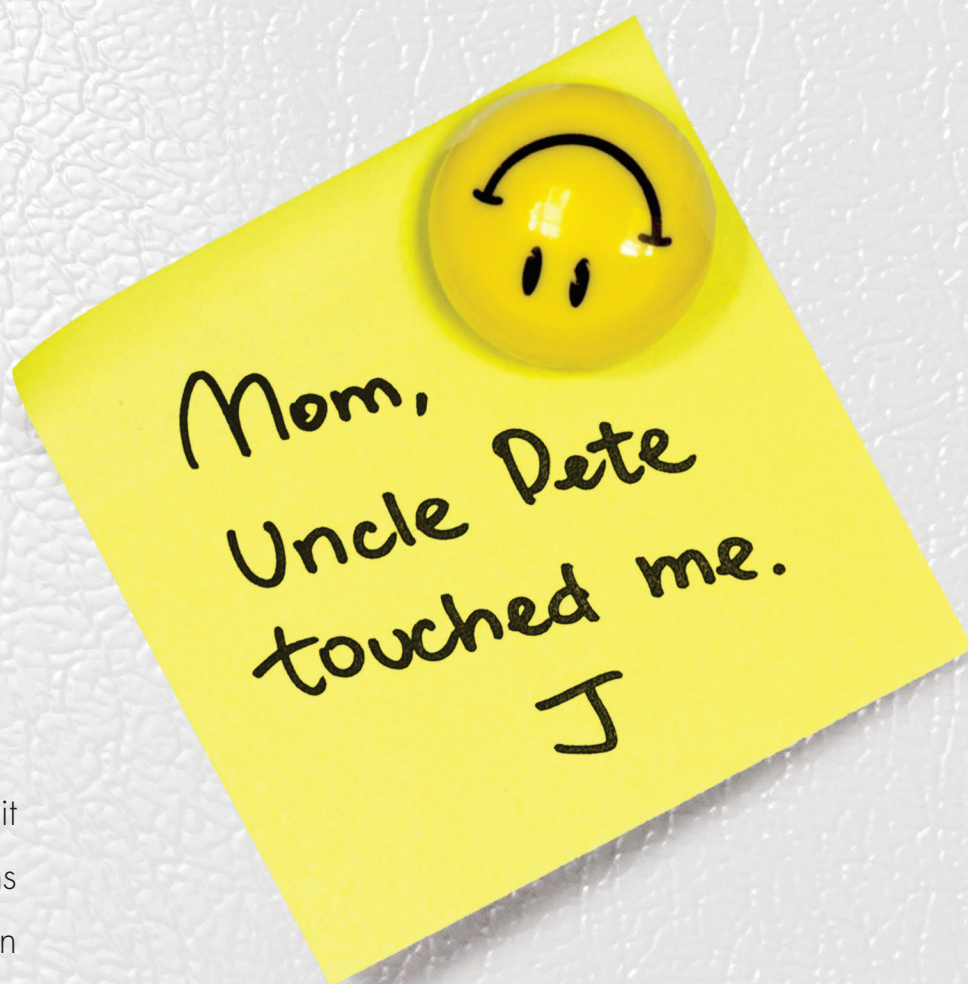 Mom,
Uncle Dete
touched me.
J
it
n